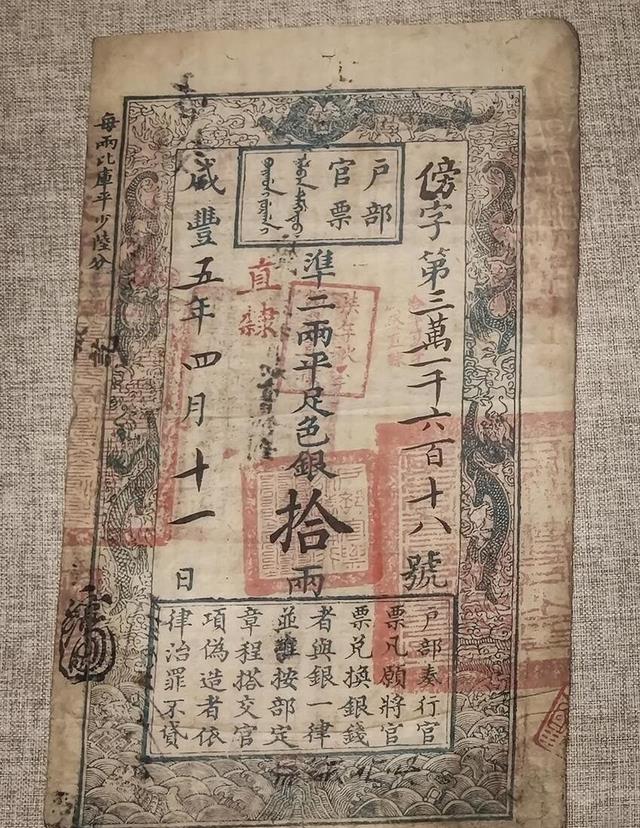 戶部
官票
傍字第三萬一千六百十八號
準二兩平足色銀拾兩
直隸
咸豐五年四月十一日
每兩比庫平少陸分
戶部奏行官
票凡願將官
票兌換銀錢
者與銀一律
並準按部定
章程搭交官
項偽造者依
律治罪不貸